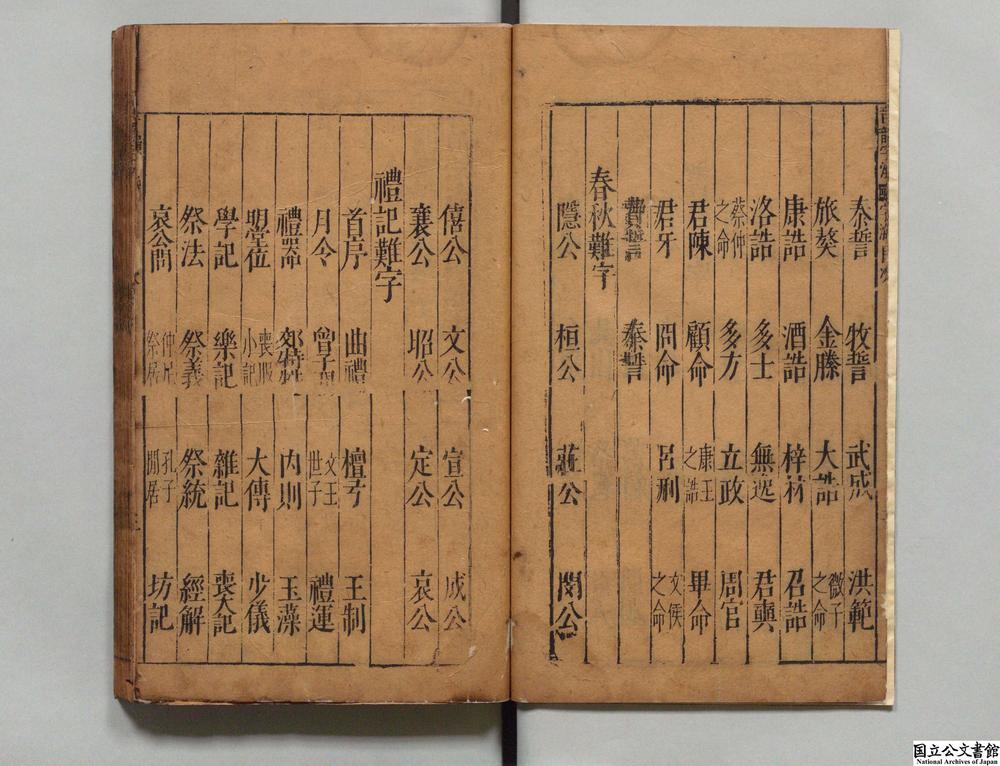 泰誓 牧誓 武成 洪範
旅獒 金縢 大誥 微子之命
康誥 酒誥 梓材 召誥
洛誥 多士 無逸 君奭
蔡仲之命 多方 立政 周官
君陳 顧命 康王之誥 畢命
君牙 冏命 呂刑 文侯之命
費誓 秦誓
春秋難字
隱公 桓公 莊公 閔公
僖公 文公 宣公 成公
襄公 昭公 定公 哀公
禮記難字
首序 曲禮 檀弓 王制
月令 曾子問 文王世子 禮運
禮器 郊特牲 內則 玉藻
明堂位 喪服小記 大傳 少儀
學記 樂記 雜記 喪大記
祭法 祭義 祭統 經解
哀公問 仲尼 孔子閒居 坊記
国立公文書館
National Archives of Japan